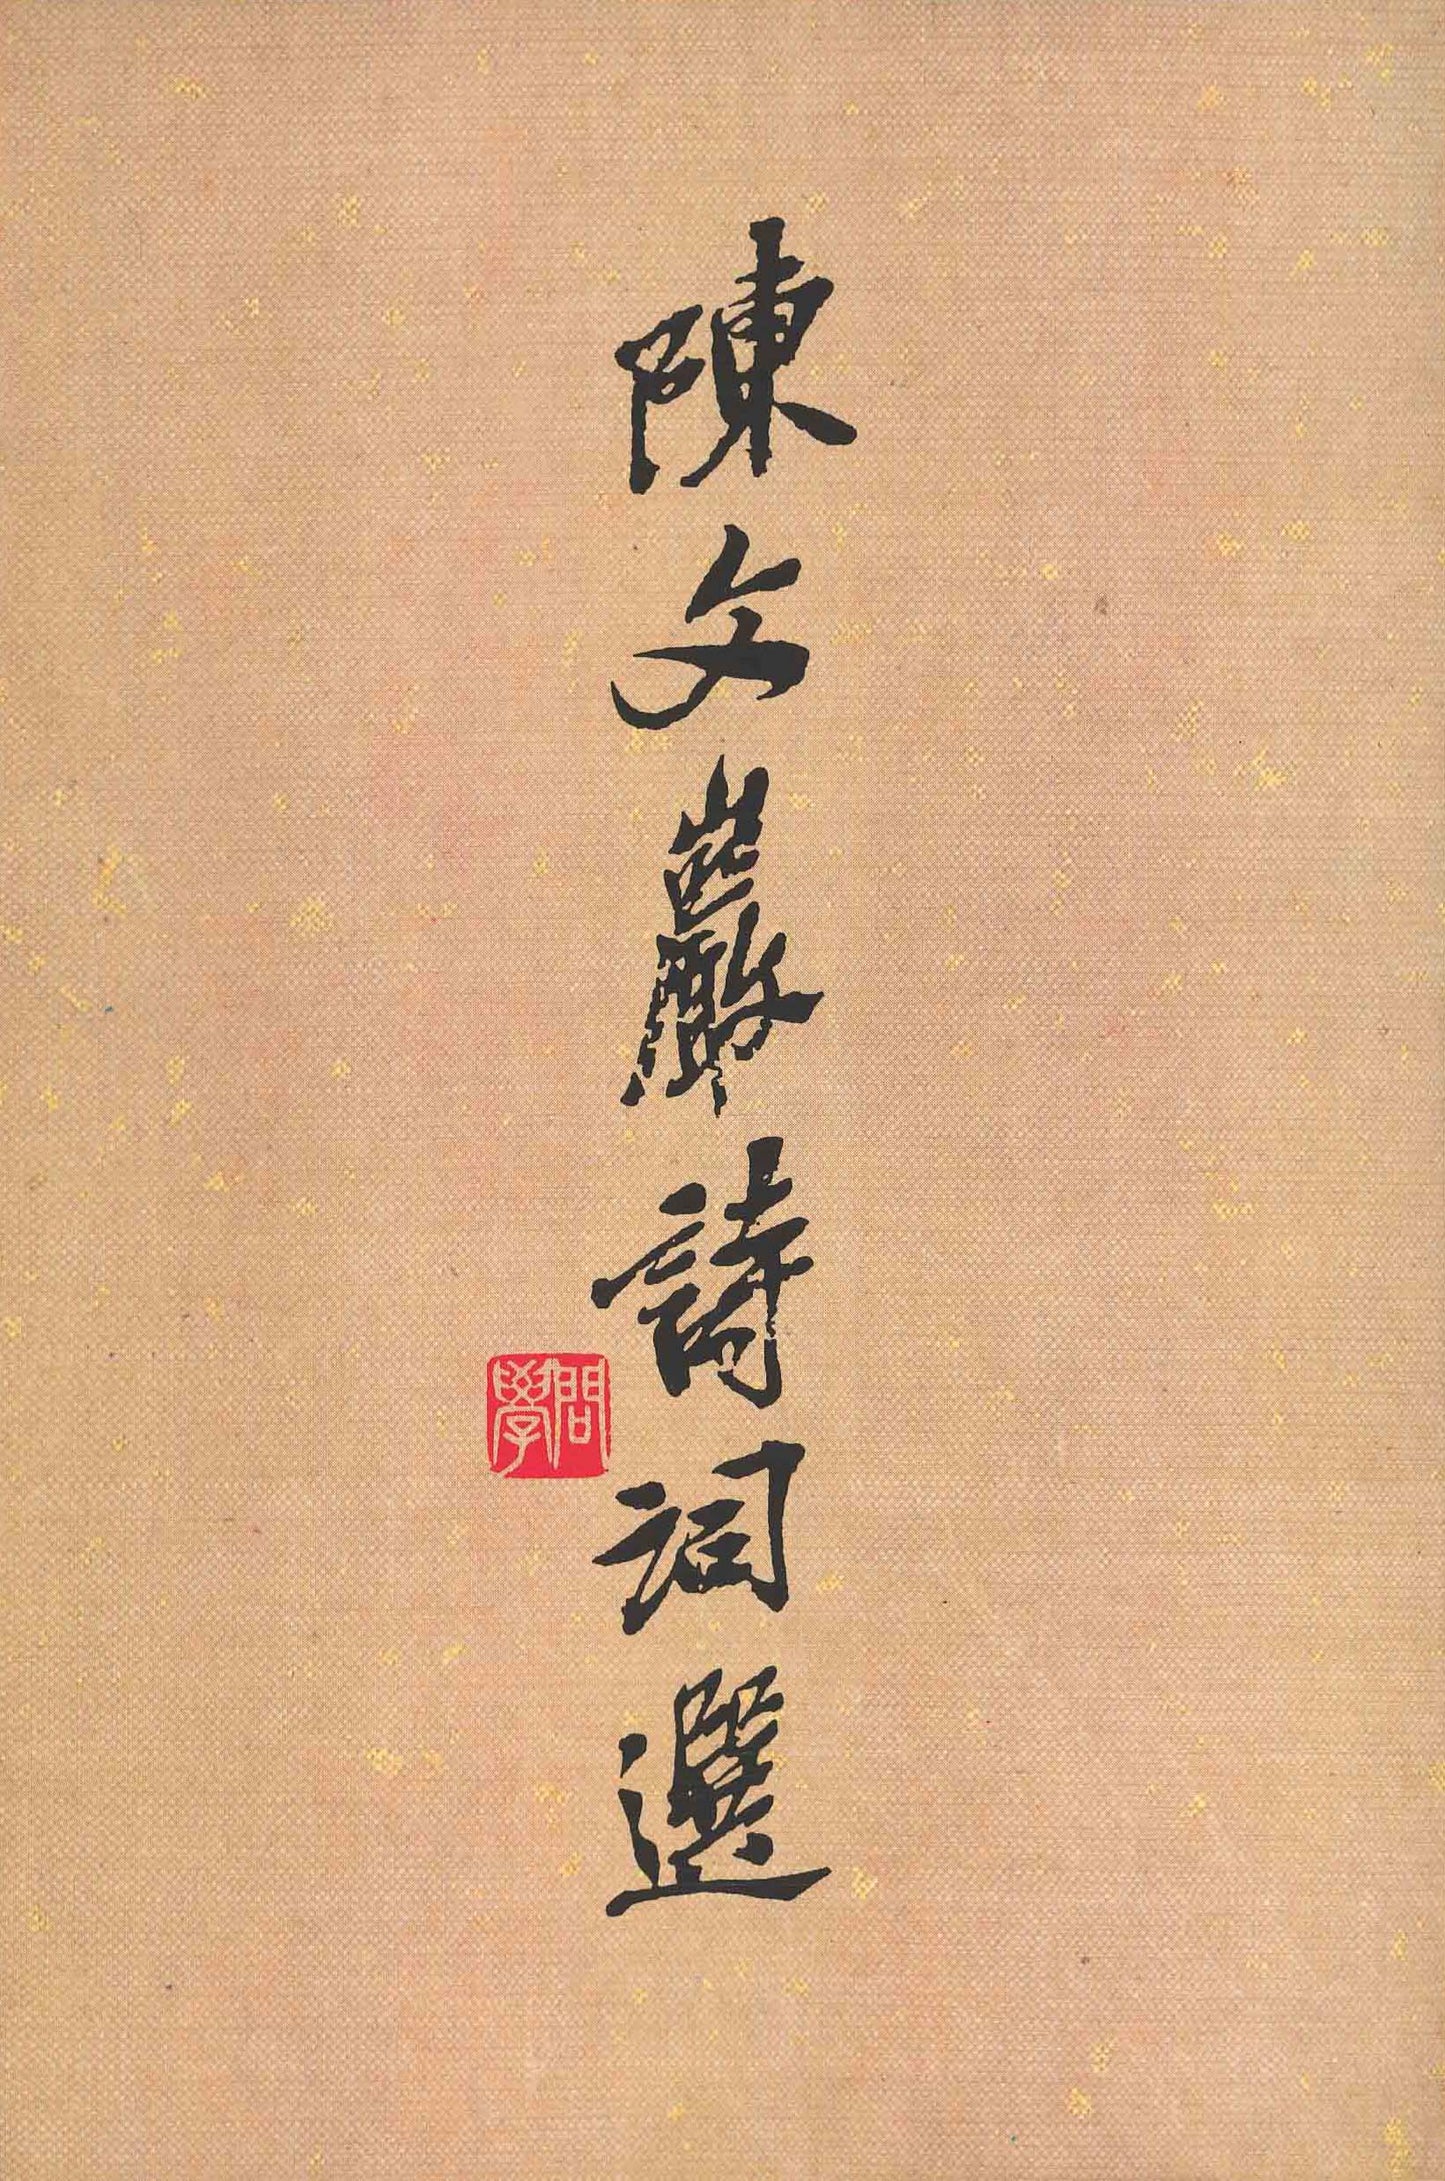 陳文巖詩詞選
問學